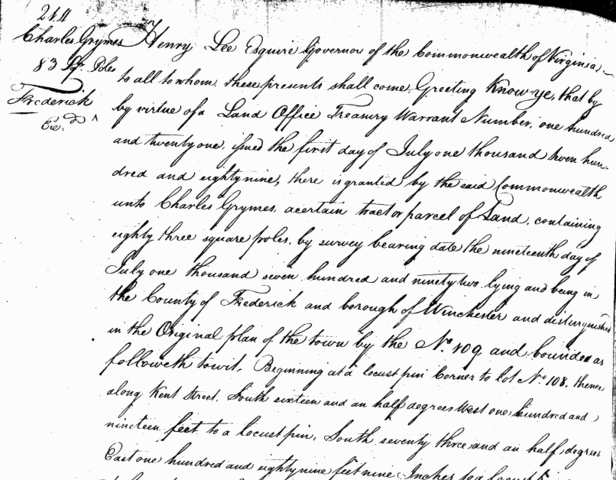 244
Charles Grymes
83 Sq. Poles
Frederick
Exd.
Henry Lee Esquire Governor of the Commonwealth of Virginia,
to all to whom these presents shall come, Greeting Know ye, that by
by virtue of a Land Office Treasury Warrant Number, one hundred
and twenty one, issued the first day of July one thousand seven hun-
dred and eighty nine, there is granted by the said Commonwealth
unto Charles Grymes, a certain tract or parcel of Land, containing
eighty three square poles, by survey bearing date the nineteenth day of
July one thousand seven hundred and ninety two lying and being in
the County of Frederick and borough of Winchester and distinguished
in the Original plan of the town by the No. 109 and bounded as
followeth towit, Beginning at a locust pin Corner to lot No. 108, thence
along Kent Street, South sixteen and an half degrees West one hundred and
nineteen feet to a locust pin, South seventy three and an half degrees
East one hundred and eighty nine feet nine Inches to a locust